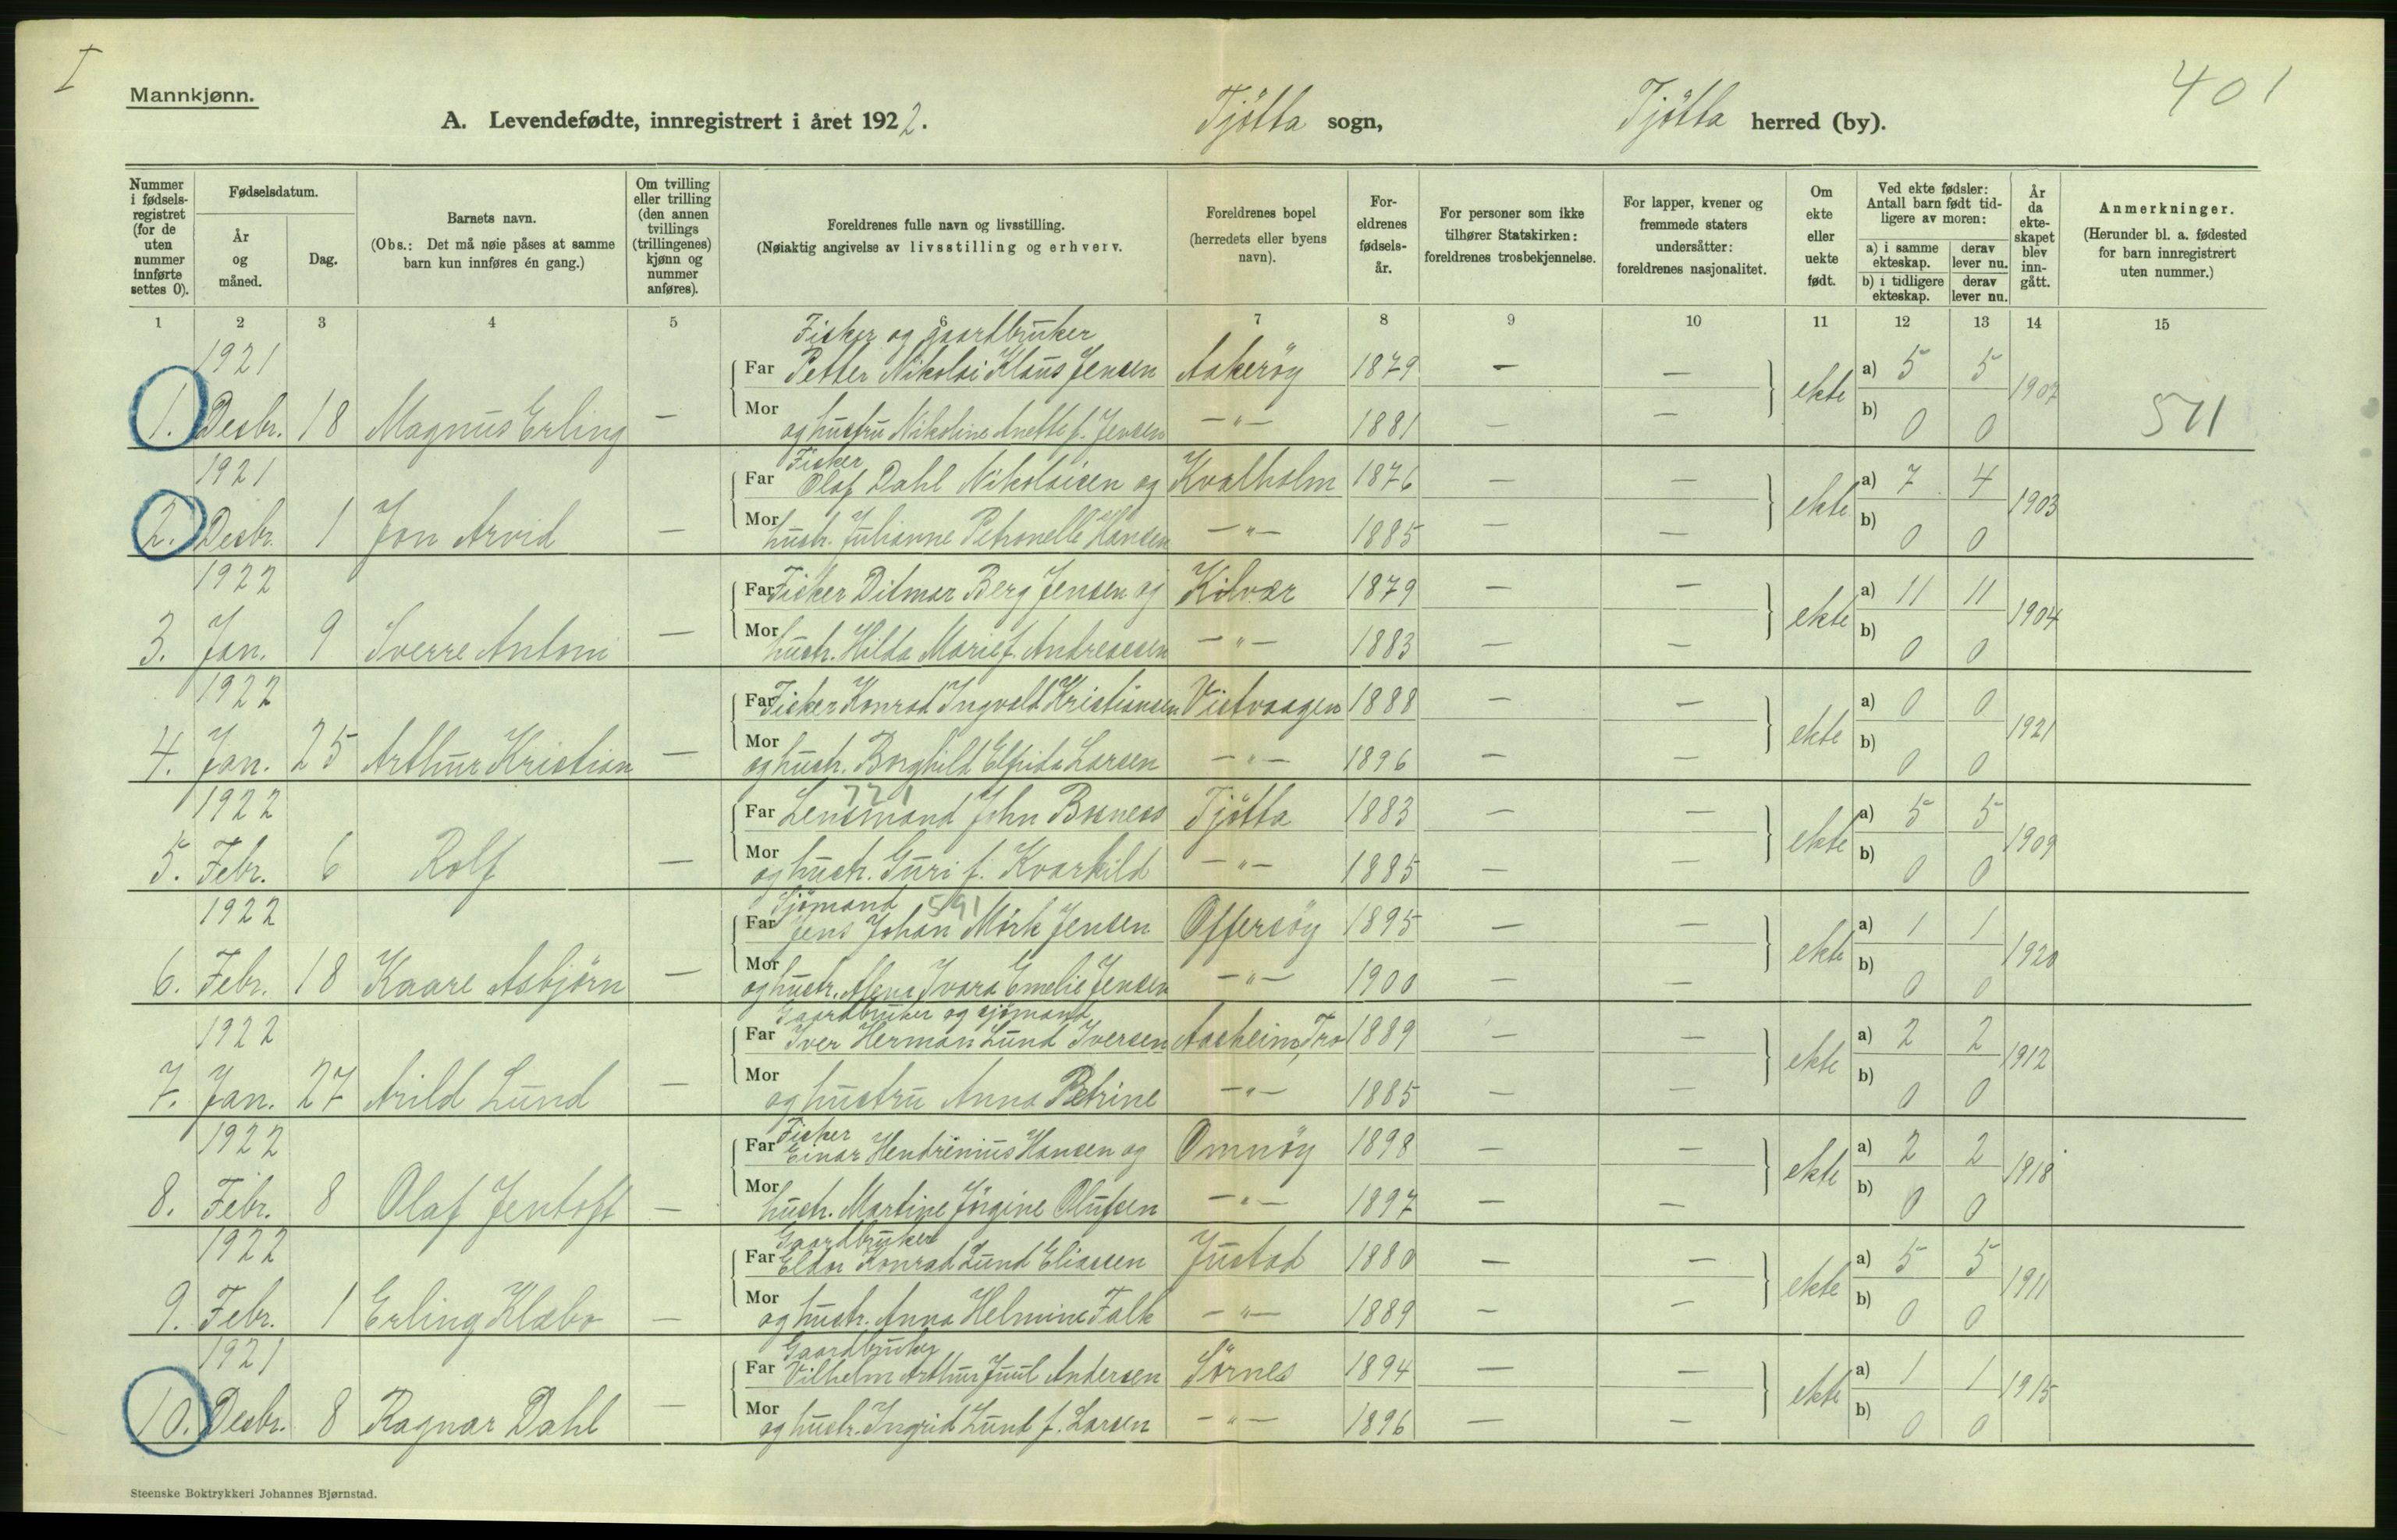 I
Mannkjønn.
401
A. Levendefødte, innregistrert i året 1922.
Tjötta sogn,
Tjötta herred (by).
Nummer i fødselsregistret (for de uten nummer innførte settes 0).
Fødselsdatum.
År og måned.
Dag.
Barnets navn.
(Obs.: Det må nøie påses at samme barn kun innføres én gang.)
Om tvilling eller trilling (den annen tvillings (trillingenes) kjønn og nummer anføres).
Foreldrenes fulle navn og livsstilling.
(Nøiaktig angivelse av livsstilling og erhverv.
Foreldrenes bopel (herredets eller byens navn).
Foreldrenes fødselsår.
For personer som ikke tilhører Statskirken: foreldrenes trosbekjennelse.
For lapper, kvener og fremmede staters undersåtter: foreldrenes nasjonalitet.
Om ekte eller uekte født.
Ved ekte fødsler: Antall barn født tidligere av moren:
a) i samme ekteskap.
derav lever nu.
b) i tidligere ekteskap.
derav lever nu.
År da ekteskapet blev inngått.
Anmerkninger.
(Herunder bl. a. fødested for barn innregistrert uten nummer.)
1 2 3 4 5 6 7 8 9 10 11 12 13 14 15
Fisker og gaardbruker
1921 Far Petter Nikolai Klaus Jensen Aakeröy 1879 — — a) 5 5
1. Desbr. 18 Magnus Erling — Mor og hustru Nikoline Anette f. Jensen — " — 1881 — — ekte b) 0 0 1907 511
Fisker
1921 Far Olaf Dahl Nikolaisen og Kvalholm 1876 — — a) 7 4
2. Desbr. 1 Jon Arvid — Mor hustr. Julianne Petronelle Hansen — " — 1885 — — ekte b) 0 0 1903
1922 Far Fisker Ditmar Berg Jensen og Kilvær 1879 — — a) 11 11
3. Jan. 9 Sverre Antoni — Mor hustr. Hilda Marie f. Andreassen — " — 1883 — — ekte b) 0 0 1904
1922 Far Fisker Konrad Ingvald Kristiansen Vistvaagen 1888 — — a) 0 0
4. Jan. 25 Arthur Kristian — Mor og hustr. Borghild Elfrida Larsen — " — 1896 — — ekte b) 0 0 1921
721
1922 Far Lensmand John Busness Tjötta 1883 — — a) 5 5
5. Febr. 6 Rolf — Mor og hustr. Guri f. Kvarkild — " — 1885 — — ekte b) 0 0 1909
Sjömand 591
1922 Far Jens Johan Mörk Jensen Offersöy 1895 — — a) 1 1
6. Febr. 18 Kaare Asbjörn — Mor og hustr. Alena Ivara Emelie Jensen — " — 1900 — — ekte b) 0 0 1920
Gaardbruker og sjömand
1922 Far Iver Herman Lund Iversen Aasheim, Tro 1889 — — a) 2 2
7. Jan. 27 Arild Lund — Mor og hustru Anna Petrine — " — 1885 — — ekte b) 0 0 1912
Fisker
1922 Far Einar Hendrinius Hansen og Omnöy 1898 — — a) 2 2
8. Febr. 8 Olaf Jentoft — Mor hustr. Martine Jörgine Olufsen — " — 1897 — — ekte b) 0 0 1918
Gaardbruker
1922 Far Eldor Konrad Lund Eliassen Justad 1880 — — a) 5 5
9. Febr. 1 Erling Klæbo — Mor og hustr. Anna Helmine Falk — " — 1889 — — ekte b) 0 0 1911
Gaardbruker
1921 Far Vilhelm Arthur Juul Andersen Sörnes 1894 — — a) 1 1
10. Desbr. 8 Ragnar Dahl — Mor og hustr. Ingrid Lund f. Larsen — " — 1896 — — ekte b) 0 0 1915
Steenske Boktrykkeri Johannes Bjørnstad.